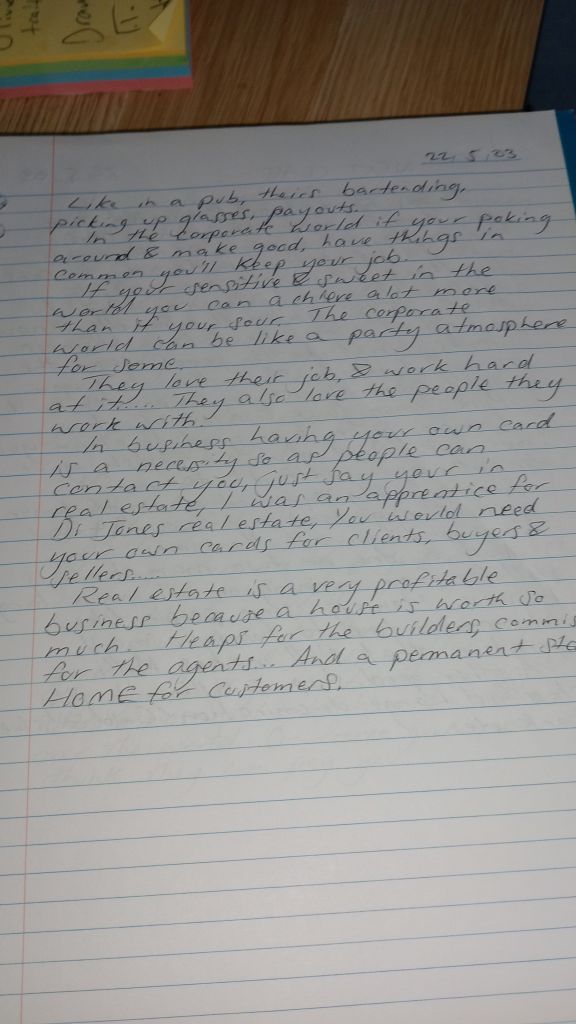 Draw
22, 5, 23
Like in a pub, theirs bartending,
picking up glasses, payouts.
In the corporate world if your poking
around & make good, have things in
common you'll keep your job.
If your sensitive & sweet in the
world you can achieve alot more
than if your sour. The corporate
world can be like a party atmosphere
for some.
They love their job, & work hard
at it..... They also love the people they
work with.
In business having your own card
is a necessity so as people can
contact you, just say your in
real estate, I was an apprentice for
Di Jones real estate, You would need
your own cards for clients, buyers &
sellers.....
Real estate is a very profitable
business because a house is worth so
much. Heaps for the builders, commis
for the agents... And a permanent
HOME for Customers.